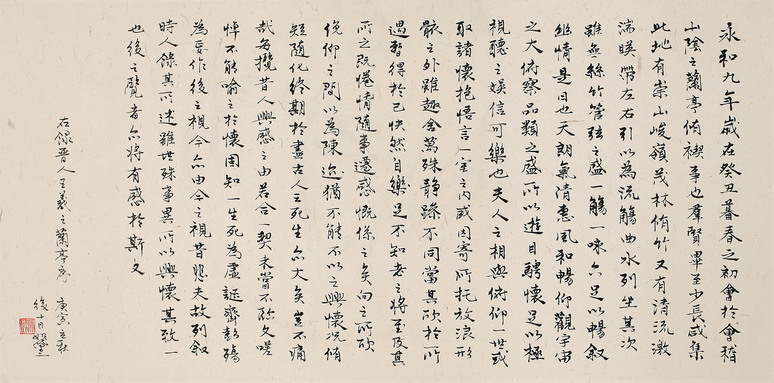 永和九年歲在癸丑暮春之初會於會稽
山陰之蘭亭脩禊事也羣賢畢至少長咸集
此地有崇山峻嶺茂林脩竹又有清流激
湍暎帶左右引以為流觴曲水列坐其次
雖無絲竹管弦之盛一觴一咏亦足以暢叙
幽情是日也天朗氣清惠風和暢仰觀宇宙
之大俯察品類之盛所以遊目騁懷足以極
視聽之娛信可樂也夫人之相與俯仰一世或
取諸懷抱悟言一室之內或因寄所托放浪形
骸之外雖趣舍萬殊靜躁不同當其欣於所
遇暫得於己快然自樂足不知老之將至及其
所之既惓情隨事遷感慨係之矣向之所欣
俛仰之間以為陳迹猶不能不以之興懷況脩
短隨化終期於盡古人云死生亦大矣豈不痛
哉每攬昔人興感之由若合一契未嘗不臨文嗟
悼不能喻之於懷固知一生死為虛誕齊彭殤
為妄作後之視今亦由今之視昔悲夫故列叙
時人錄其所述雖世殊事異所以興懷其致一
也後之覽者亦將有感於斯文
右錄晉人王羲之蘭亭序 庚寅之秋
後十日